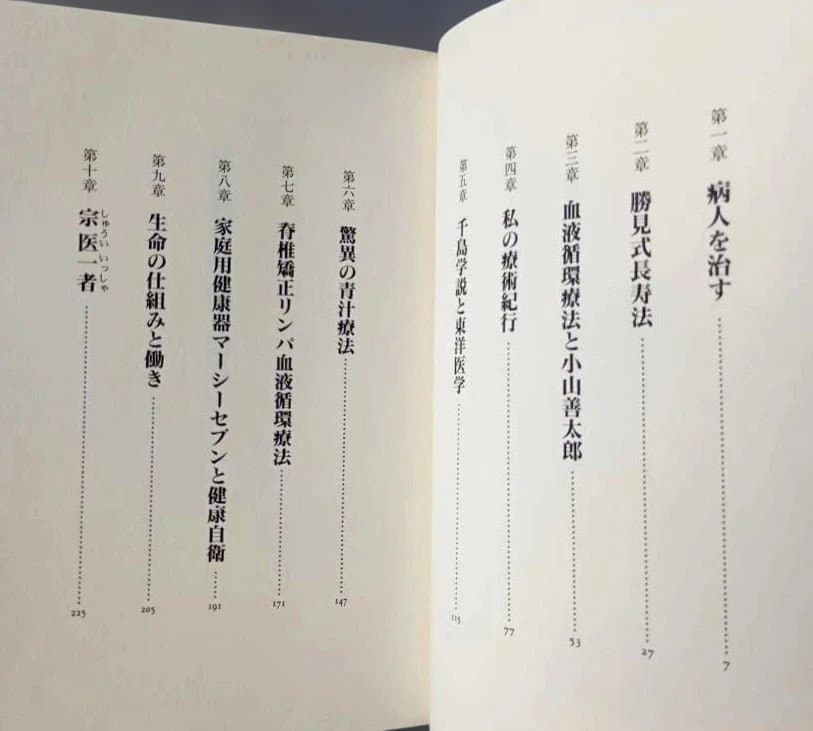 第一章 病人を治す 7
第二章 勝見式長寿法 27
第三章 血液循環療法と小山善太郎 53
第四章 私の療術紀行 77
第五章 千島学説と東洋医学 115
第六章 驚異の青汁療法 147
第七章 脊椎矯正リンパ血液循環療法 171
第八章 家庭用健康器マーシーセブンと健康自衛 191
第九章 生命の仕組みと働き 205
第十章 宗医一者 225
しゅうい いっしゃ